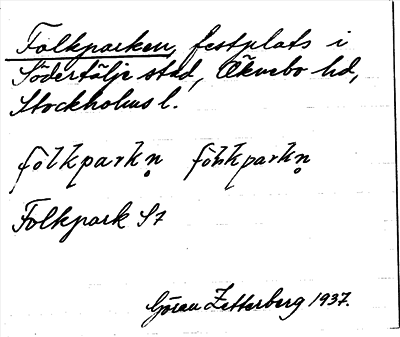 Folkparken, festplats i
Södertälje stad, Öknebo hd,
Stockholms l.
fölkparkn̥ fölkparkn̥
Folkpark S7
Göran Zetterberg 1937.